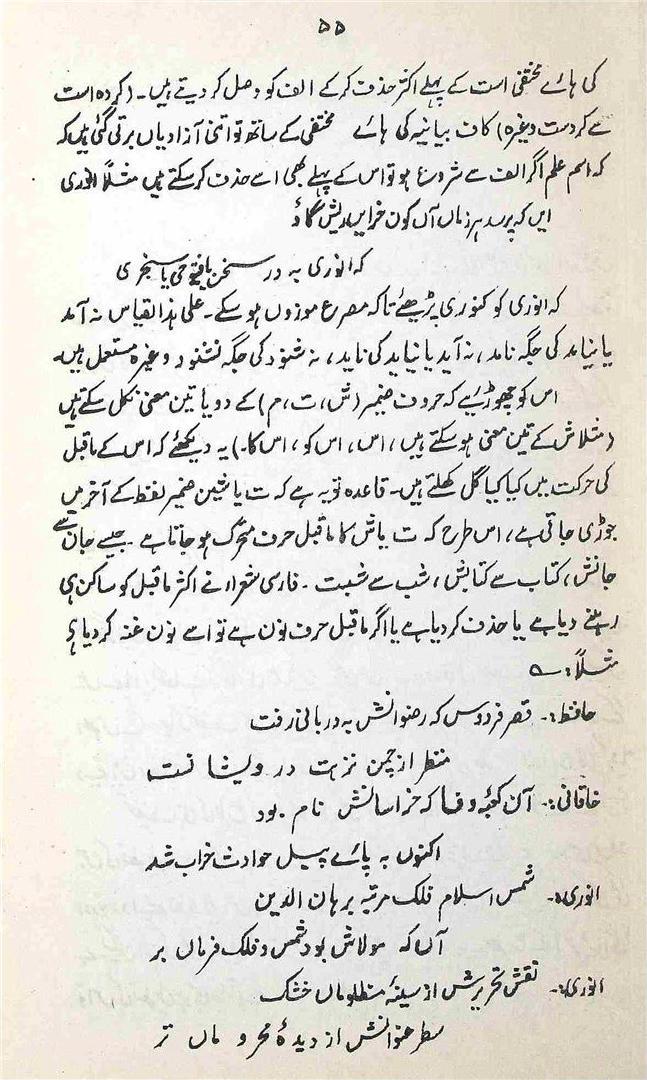 ۵۵
کی ہائے مختفی است کے پہلے اکثر حذف کرکے الف کو وصل کر دیتے ہیں۔ (کردہ است
سے کردست وغیرہ) کاف بیانیہ کی ہائے مختفی کے ساتھ تو اتنی آزادیاں برتی گئی ہیں کہ
کہ اسم علم اگر الف سے شروع ہو تو اس کے پہلے بھی اسے حذف کر سکتے ہیں مثلاً انوری
ایں کہ پرسد ہر زماں آں کون خر ایں ریش گاؤ
کہ انوری بہ در سخن یا فتوحی یا سنجری
کہ انوری کو کنوری پڑھیئے تاکہ مصرع موزوں ہو سکے۔ علیٰ ہذا القیاس نہ آمد
یا نیامد کی جگہ نامد، نہ آید یا نیاید کی ناید، نہ شنود کی جگہ نشنود وغیرہ مستعمل ہیں۔
اس کو چھوڑیئے کہ حروف ضمیر (ش، ت، م) کے دو یا تین معنی نکل سکتے ہیں
(مثلا ش کے تین معنی ہو سکتے ہیں، اس، اس کو، اس کا۔) یہ دیکھئے کہ اس کے ماقبل
کی حرکت میں کیا کیا گل کھلتے ہیں۔ قاعدہ تو یہ ہے کہ ت یا شین ضمیر لفظ کے آخر میں
جوڑی جاتی ہے، اس طرح کہ ت یا ش کا ماقبل حرف متحرک ہو جاتا ہے۔ جیسے جان سے
جانش، کتاب سے کتابش، شب سے شبت۔ فارسی شعراء نے اکثر ماقبل کو ساکن ہی
رہنے دیا ہے یا حذف کر دیا ہے یا اگر ماقبل حرف نون ہے تو اسے نون غنہ کر دیا ہے
مثلاً:۔
حافظ:۔ قصر فردوس کہ رضوانش بہ دربانی رفت
منظر از چمن نزہت درویشانست
خاقانی:۔ آن کعبۂ وفا کہ خراسانش نام بود
اکنوں بہ پائے پیل حوادث خراب شد
انوری:۔ شمس اسلام فلک مرتبہ برہان الدین
آں کہ مولاش بود شمس و فلک فرماں بر
انوری:۔ نقش تحریرش از سینۂ مظلوماں خشک
سطر عنوانش از دیدۂ محروماں تر